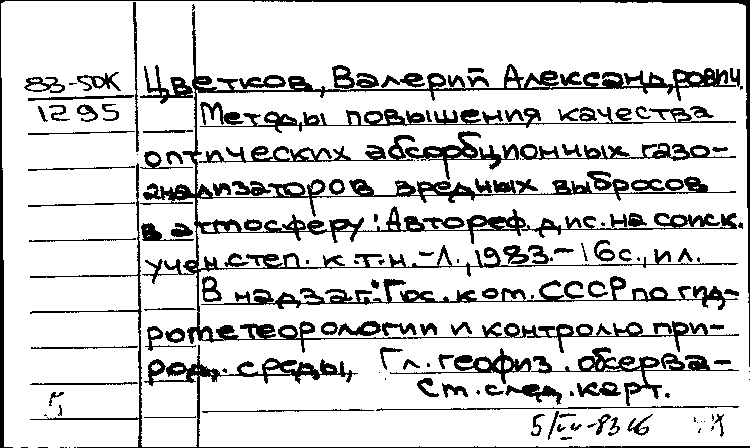 83-5DK Цветков, Валерий Александрович.
1295 Методы повышения качества
оптических абсорбционных газо-
анализаторов вредных выбросов
в атмосферу: Автореф. дис. на соиск.
учен. степ. к.т.н. - Л., 1983. - 16 с., ил.
В надзаг.: Гос. ком. СССР по гид-
рометеорологии и контролю при-
род. среды, Гл. геофиз. обсерва-
См. след. карт.
5